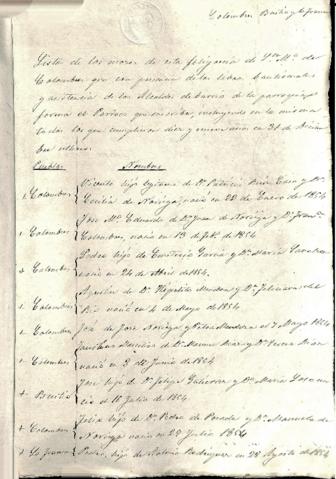 Colombres Bustio y la Franca
Lista de los mozos de esta feligresia de Sta. Ma. de
Colombres que con presencia de los libros bautismales
y asistencia de los Alcaldes de barrio de la parroquia
forma el Parroco que suscribe, incluyendo en la misma
todos los que cumplieron diez y nueve años en 31 de Diciem
bre ultimo.
Pueblos Nombres
+ Colombres Vicente hijo legitimo de Dn. Patricio Ruiz y Da.
Cecilia de Noriega, nacio en 22 de Enero de 1854
+ Colombres José Ma. Eduardo de Dn. Juan de Noriega y Da.
Colombres, nacio en 13 de Feb. de 1854
+ Colombres Pedro hijo de Eustaquio Garcia y Da. Maria
nacio en 24 de Abril de 1854.
+ Colombres Agustin de Dn. Hipolito Mendoza y Da. Feliciana del
Rio nacio en 4 de Mayo de 1854
+ Colombres José de José Noriega y 7 Mayo 1854
+ Colombres
nacio en 3 de Junio de 1854
+ Bustio José hijo de Dn. Felipe Gutierrez y Da. Maria
el 18 Julio de 1854
+ Colombres Felix hijo de Dn. Pedro de Posada y Da. Manuela de
Noriega nacio en 29 Julio 1854
+ La Franca Pedro, hijo de Antonio Rodriguez en 28 Agosto de 1854